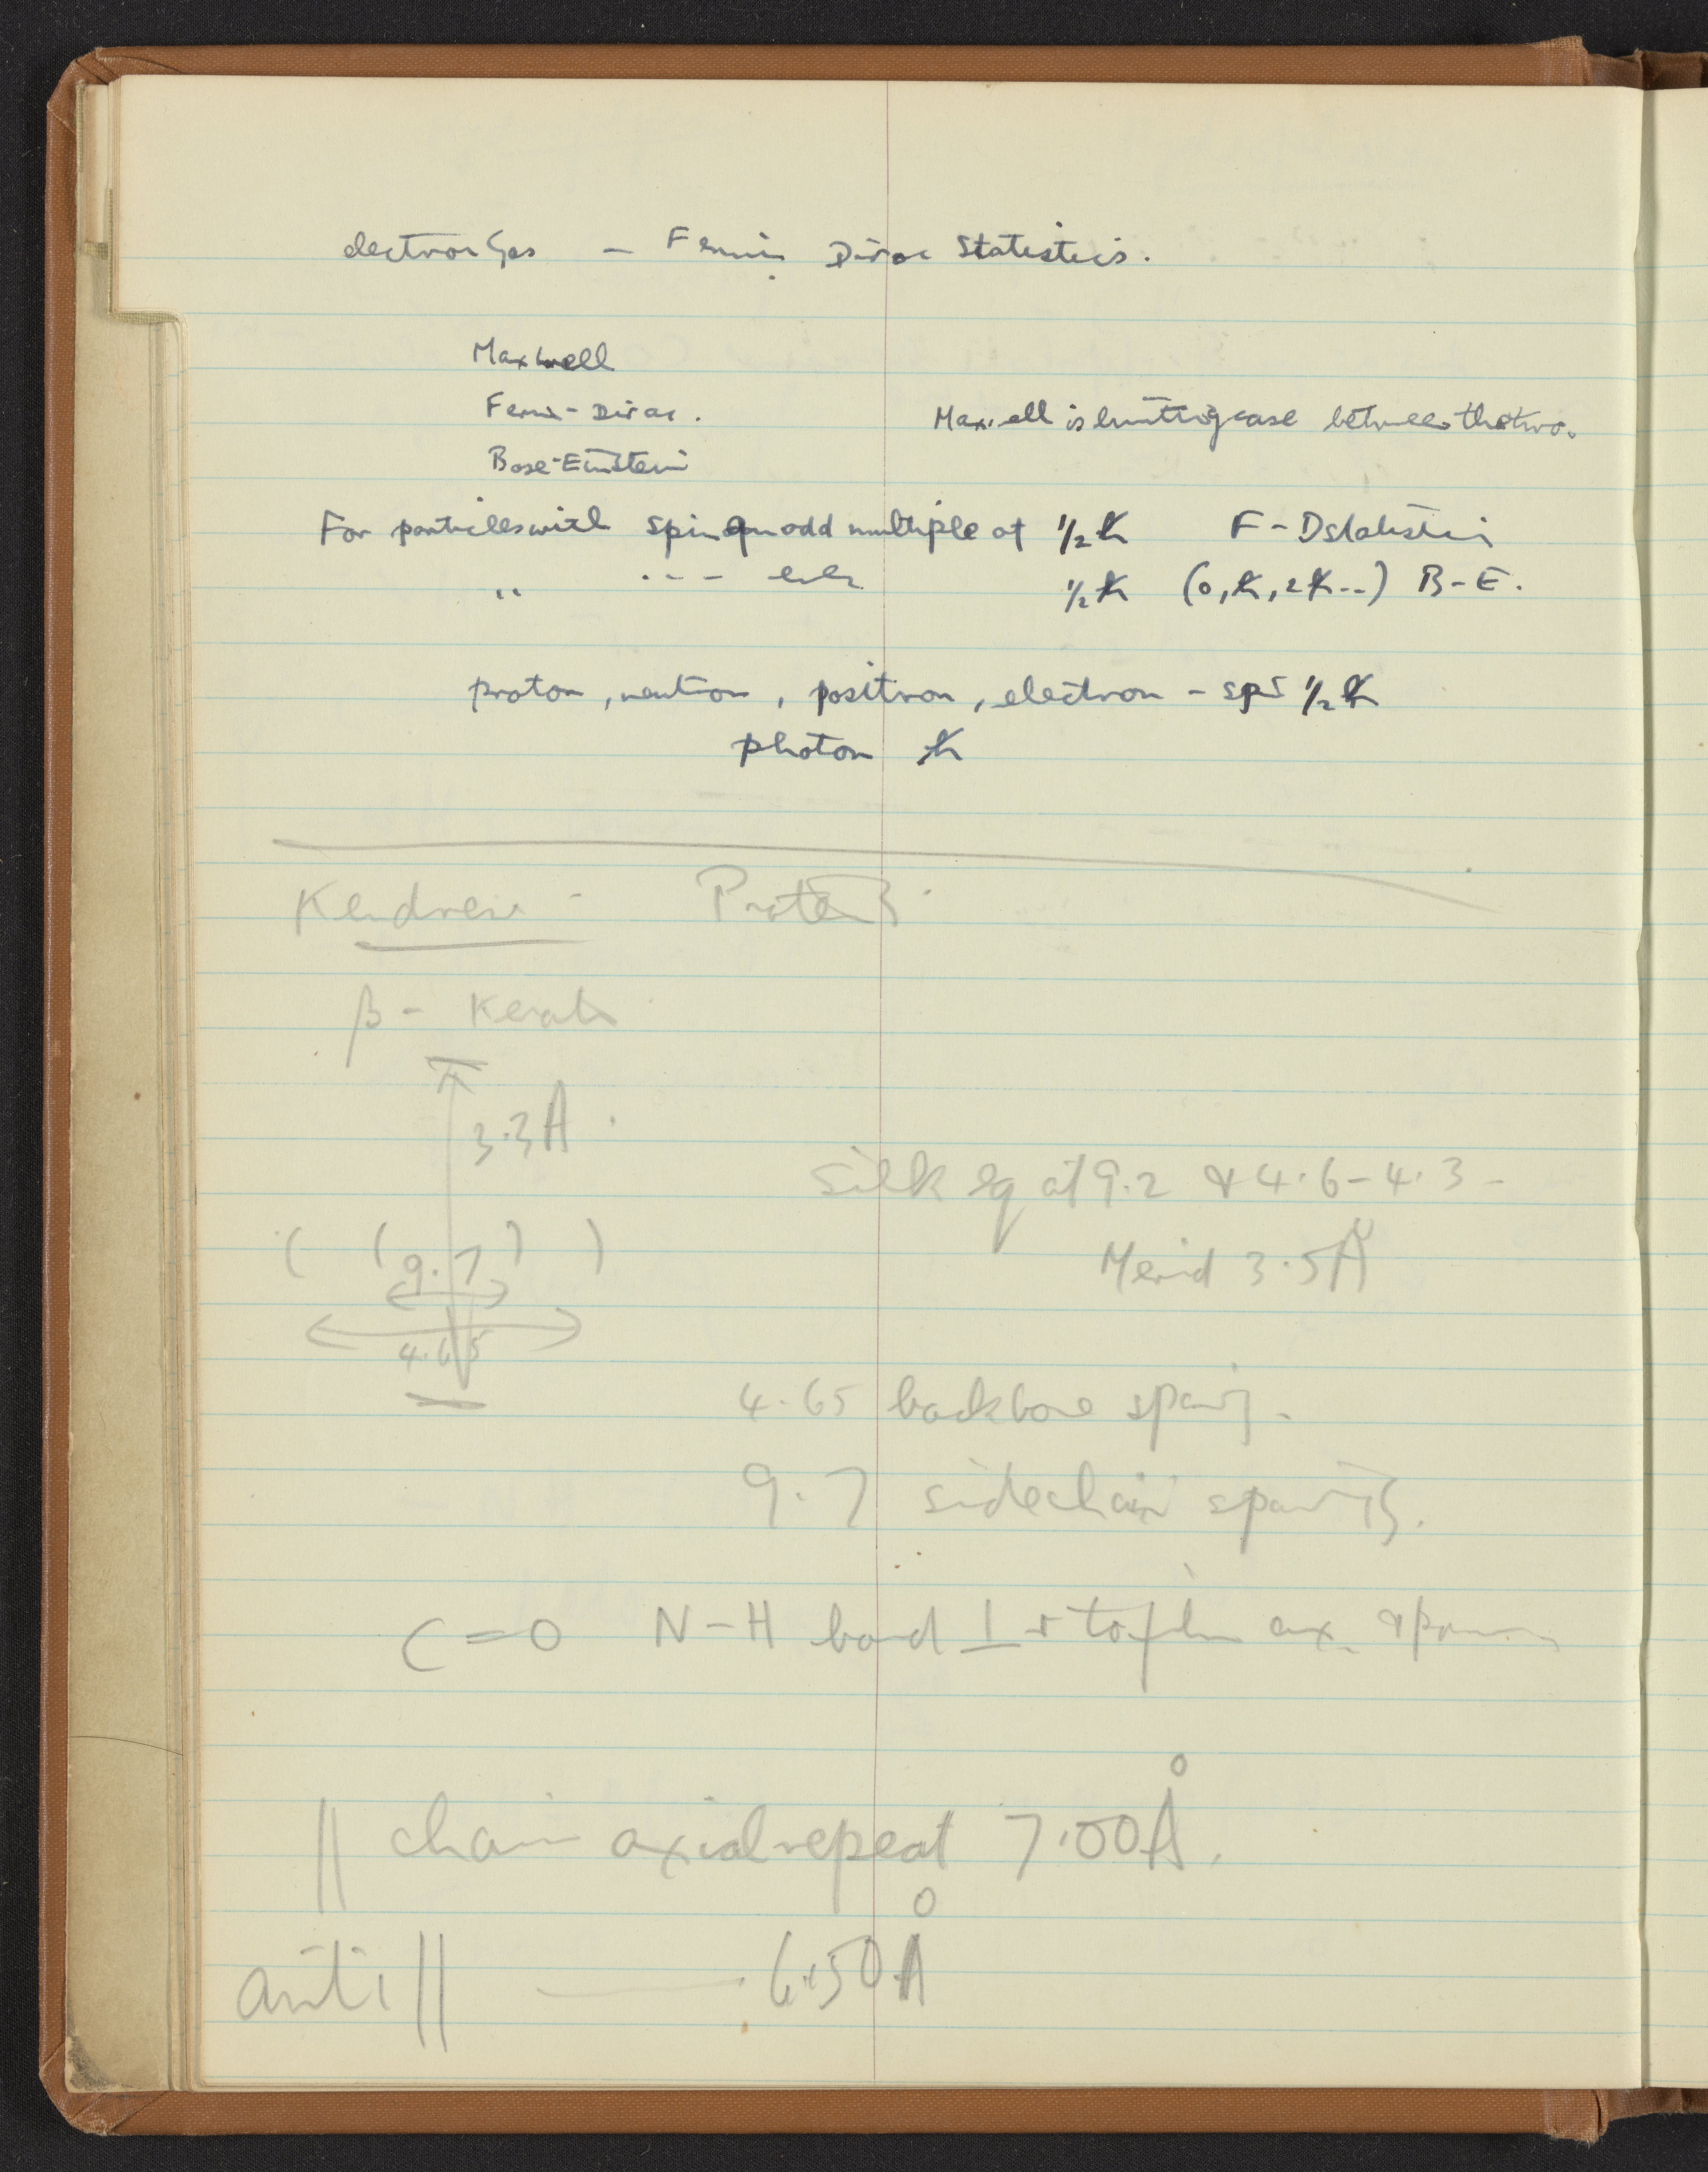 electron Gas — Fermi Dirac Statistics.
Maxwell
Fermi-Dirac.
Maxwell is limiting case between the two.
Bose-Einstein
For particles with spin an odd multiple of ½ħ F-D statistics
" --- even ½ħ (0, ħ, 2ħ--) B-E.
proton, neutron, positron, electron - spin ½ħ
photon ħ
Kendrew - Proteins
β- Keratin
3.3Å
Silk eq at 9.2 & 4.6-4.3-
( (9.7) )
Merid 3.5Å
4.65
4.65 backbone spacing.
9.7 sidechain spacing.
C=O N-H bond ⊥r to ax.
|| chain axial repeat 7.00Å.
anti || —— 6.50Å